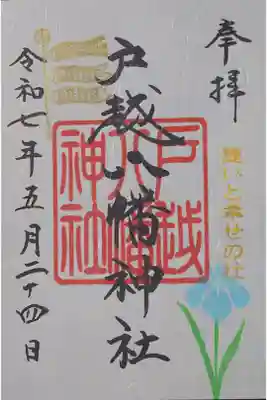 奉拝
いと幸せの
戸越八幡神社
戸越
八幡
神社
令和七年五月二十四日